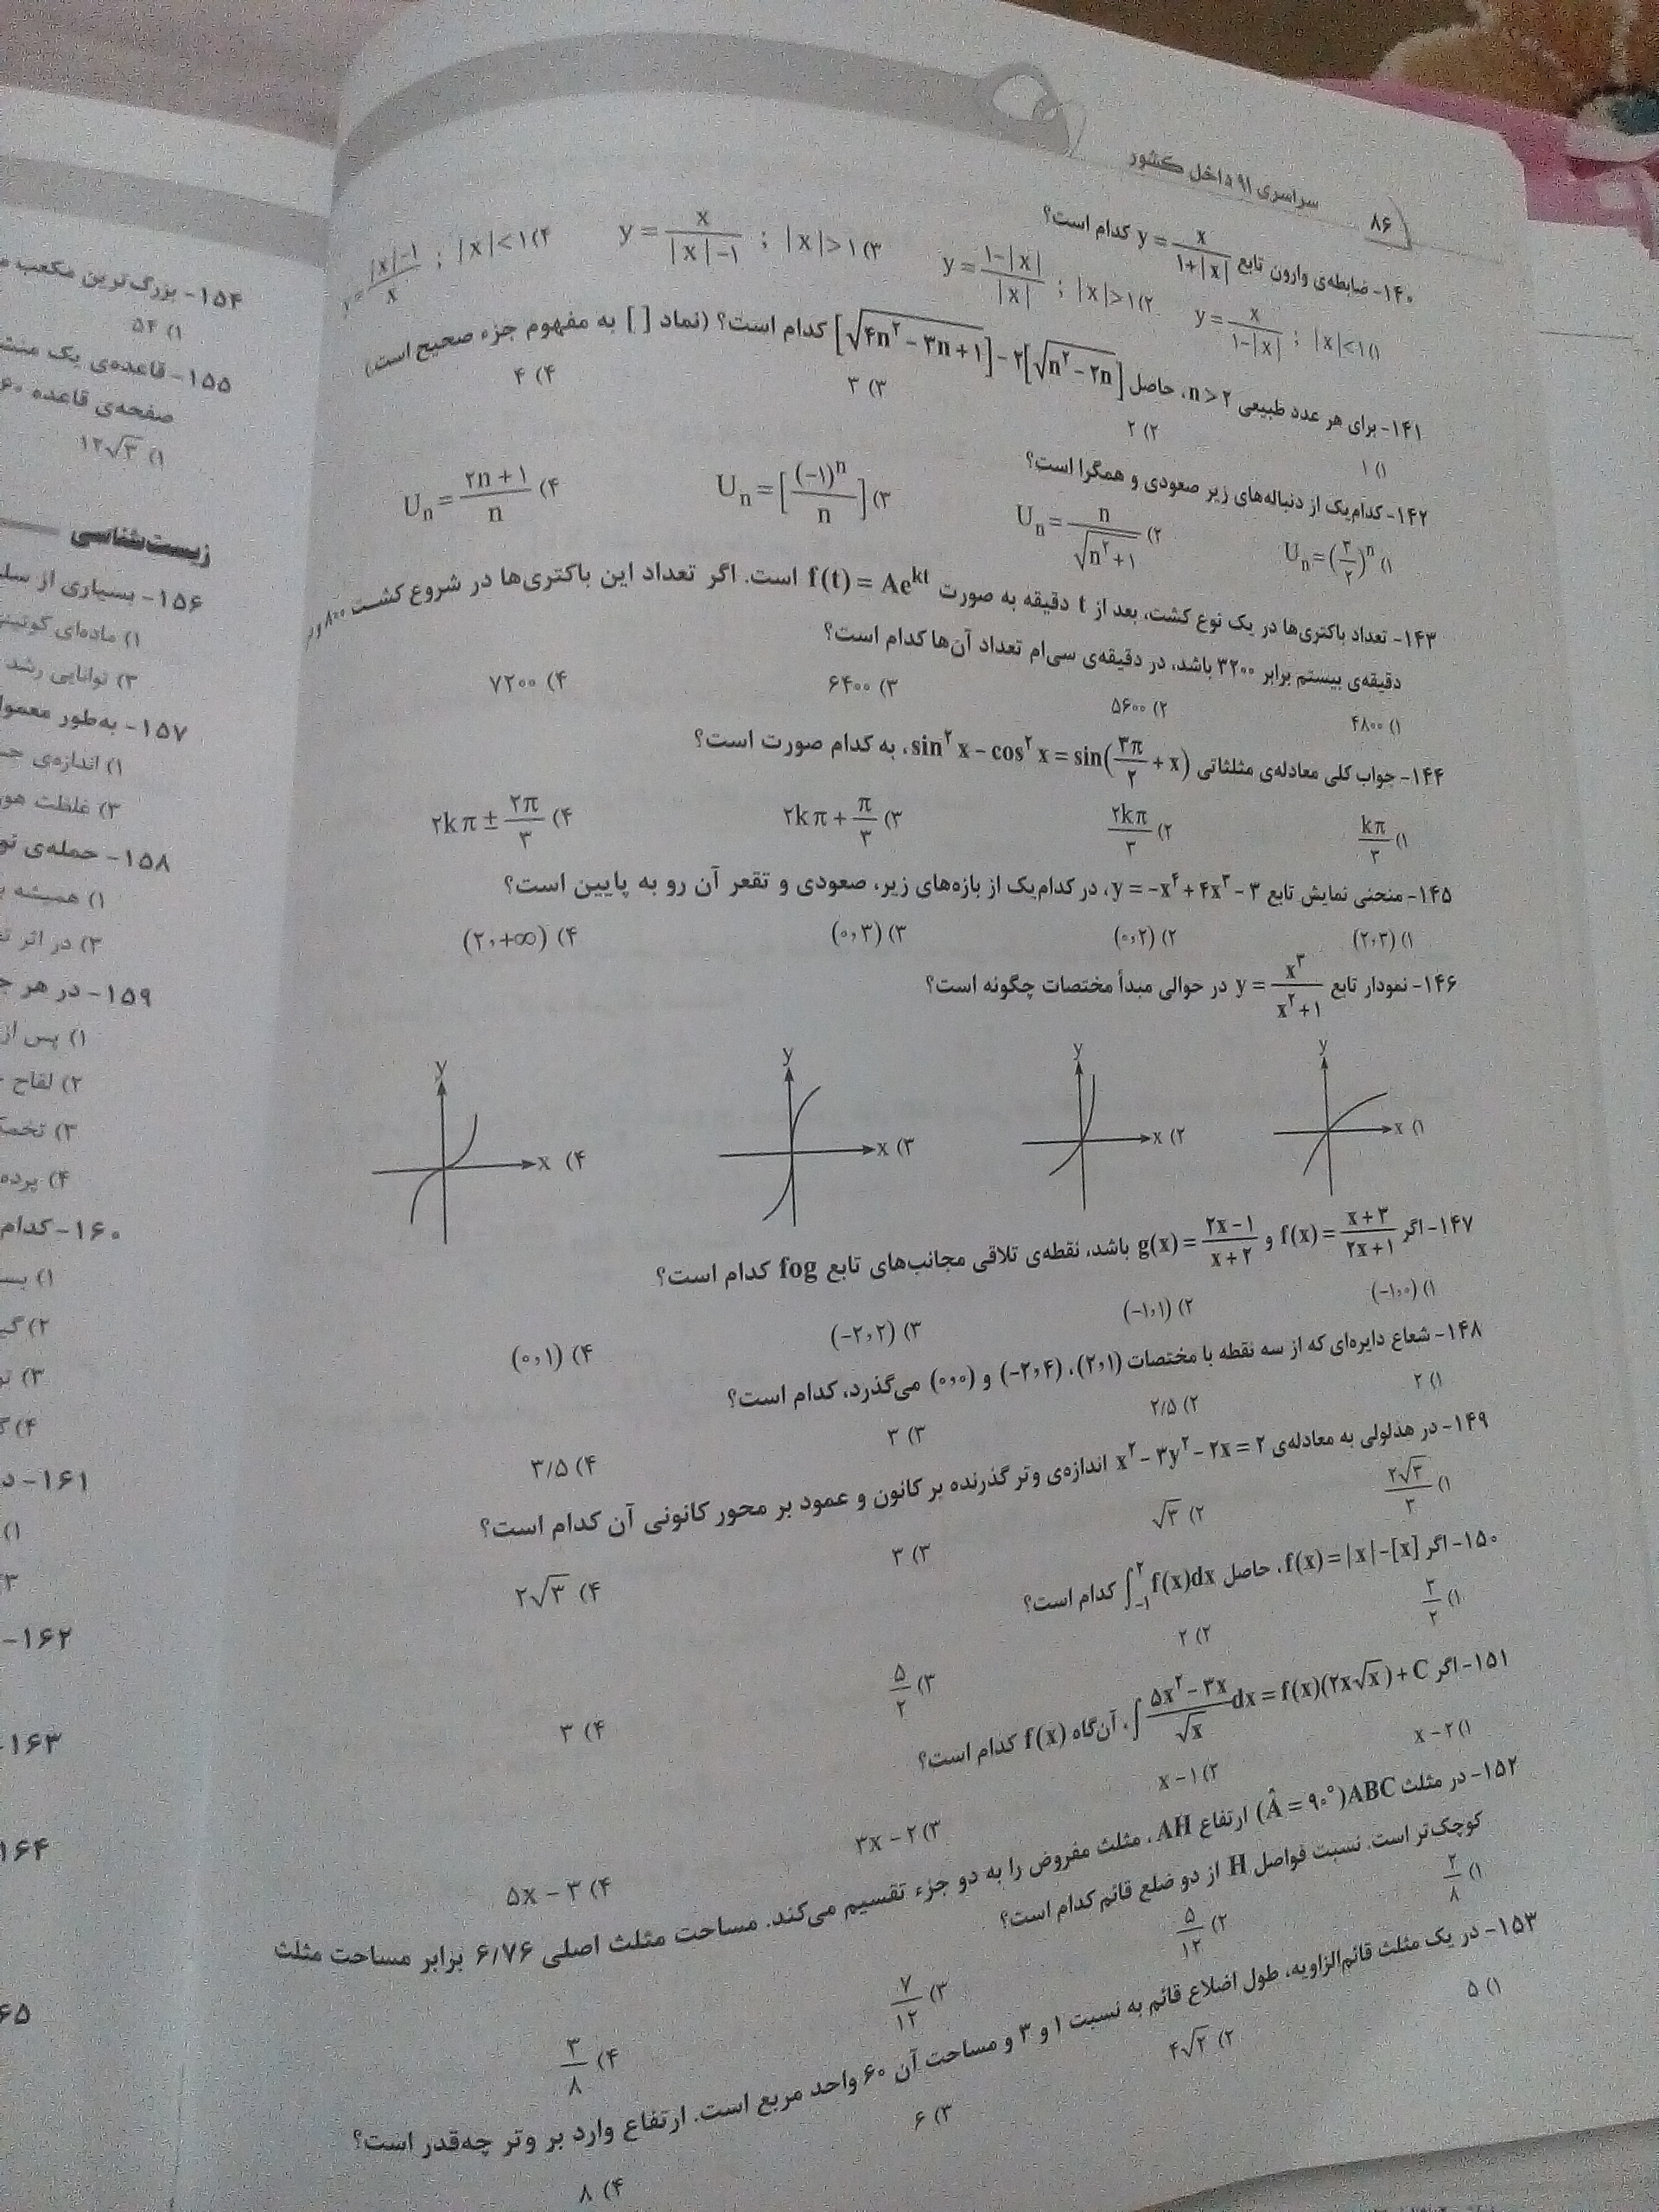 ۸۶ سراسری ۹۱ داخل کشور
۱۴۰- ضابطه‌ی وارون تابع y = x/(۱+|x|) کدام است؟
۱) y = x/(۱-|x|) ; |x|<۱ ۲) y = (۱-|x|)/|x| ; |x|>۱ ۳) y = x/(|x|-۱) ; |x|>۱ ۴) y = (|x|-۱)/x ; |x|<۱
۱۴۱- برای هر عدد طبیعی n>۲، حاصل [√(۴n²-۳n+۱)]-۲[√(n²-۲n)] کدام است؟ (نماد [ ] به مفهوم جزء صحیح است.)
۱) ۱ ۲) ۲ ۳) ۳ ۴) ۴
۱۴۲- کدام‌یک از دنباله‌های زیر صعودی و همگرا است؟
۱) Uₙ=(۳/۲)ⁿ ۲) Uₙ = n/√(n²+۱) ۳) Uₙ = [(-۱)ⁿ/n] ۴) Uₙ = (۲n+۱)/n
۱۴۳- تعداد باکتری‌ها در یک نوع کشت، بعد از t دقیقه به صورت f(t) = Ae^{kt} است. اگر تعداد این باکتری‌ها در شروع کشت ۸۰۰ و در
دقیقه‌ی بیستم برابر ۳۲۰۰ باشد، در دقیقه‌ی سی‌ام تعداد آن‌ها کدام است؟
۱) ۴۸۰۰ ۲) ۵۶۰۰ ۳) ۶۴۰۰ ۴) ۷۲۰۰
۱۴۴- جواب کلی معادله‌ی مثلثاتی sin²x - cos²x = sin(۳π/۲ + x)، به کدام صورت است؟
۱) kπ/۳ ۲) ۲kπ/۳ ۳) ۲kπ + π/۳ ۴) ۲kπ ± ۲π/۳
۱۴۵- منحنی نمایش تابع y = -x⁴ + ۴x³ - ۳، در کدام‌یک از بازه‌های زیر، صعودی و تقعر آن رو به پایین است؟
۱) (۲,۳) ۲) (۰,۲) ۳) (۰,۳) ۴) (۲,+∞)
۱۴۶- نمودار تابع y = x³/(x²+۱) در حوالی مبدأ مختصات چگونه است؟
y y y y
۱) x ۲) x ۳) x ۴) x
۱۴۷- اگر f(x) = (x+۳)/(۲x+۱) و g(x) = (۲x-۱)/(x+۲) باشد، نقطه‌ی تلاقی مجانب‌های تابع fog کدام است؟
۱) (-۱,۰) ۲) (-۱,۱) ۳) (-۲,۲) ۴) (۰,۱)
۱۴۸- شعاع دایره‌ای که از سه نقطه با مختصات (۲,۱)، (-۲,۴) و (۰,۰) می‌گذرد، کدام است؟
۱) ۲ ۲) ۲/۵ ۳) ۳ ۴) ۳/۵
۱۴۹- در هذلولی به معادله‌ی x² - ۳y² - ۲x = ۲ اندازه‌ی وتر گذرنده بر کانون و عمود بر محور کانونی آن کدام است؟
۱) ۲√۳/۳ ۲) √۳ ۳) ۳ ۴) ۲√۳
۱۵۰- اگر f(x) = |x| - [x]، حاصل ∫₋₁² f(x)dx کدام است؟
۱) ۳/۲ ۲) ۲ ۳) ۵/۲ ۴) ۳
۱۵۱- اگر ∫(۵x² - ۳x)/√x dx = f(x)(۲x√x) + C، آن‌گاه f(x) کدام است؟
۱) x - ۲ ۲) x - ۱ ۳) ۳x - ۲ ۴) ۵x - ۳
۱۵۲- در مثلث ABC (Â = ۹۰°) ارتفاع AH، مثلث مفروض را به دو جزء تقسیم می‌کند. مساحت مثلث اصلی ۶/۷۶ برابر مساحت مثلث
کوچک‌تر است. نسبت فواصل H از دو ضلع قائم کدام است؟
۱) ۲/۸ ۲) ۵/۱۲ ۳) ۷/۱۲ ۴) ۳/۸
۱۵۳- در یک مثلث قائم‌الزاویه، طول اضلاع قائم به نسبت ۱ و ۳ و مساحت آن ۶۰ واحد مربع است. ارتفاع وارد بر وتر چه‌قدر است؟
۱) ۵ ۲) ۴√۲ ۳) ۶ ۴) ۸
۱۵۴- بزرگ‌ترین مکعب
۱) ۵۴
۱۵۵- قاعده‌ی یک
صفحه‌ی قاعده
۱) ۱۲√۳
زیست‌شناسی
۱۵۶- بسیاری از
۱) ماده‌ای
۳) توانایی رشد
۱۵۷- به‌طور
۱) اندازه‌ی
۳) غلظت
۱۵۸- حمله‌ی
۱) همیشه
۳) در اثر
۱۵۹- در هر
۱) پس از
۲) لقاح
۳)
۴) پرده
۱۶۰- کدام
۱)
۲)
۳)
۴)
۱۶۱-
۱)
۱۶۲-
۱۶۳-
۱۶۴